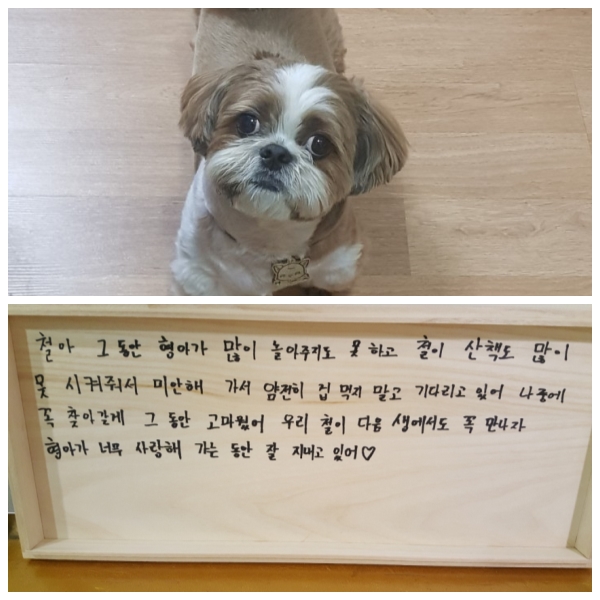 철아 그동안 형아가 많이 놀아주지도 못 하고 철이 산책도 많이
못 시켜줘서 미안해 가서 얌전히 겁 먹지 말고 기다리고 있어 나중에
꼭 찾아갈게 그 동안 고마웠어 우리 철이 다음 생에서도 꼭 만나자
형아가 너무 사랑해 가는 동안 잘 지내고 있어♡